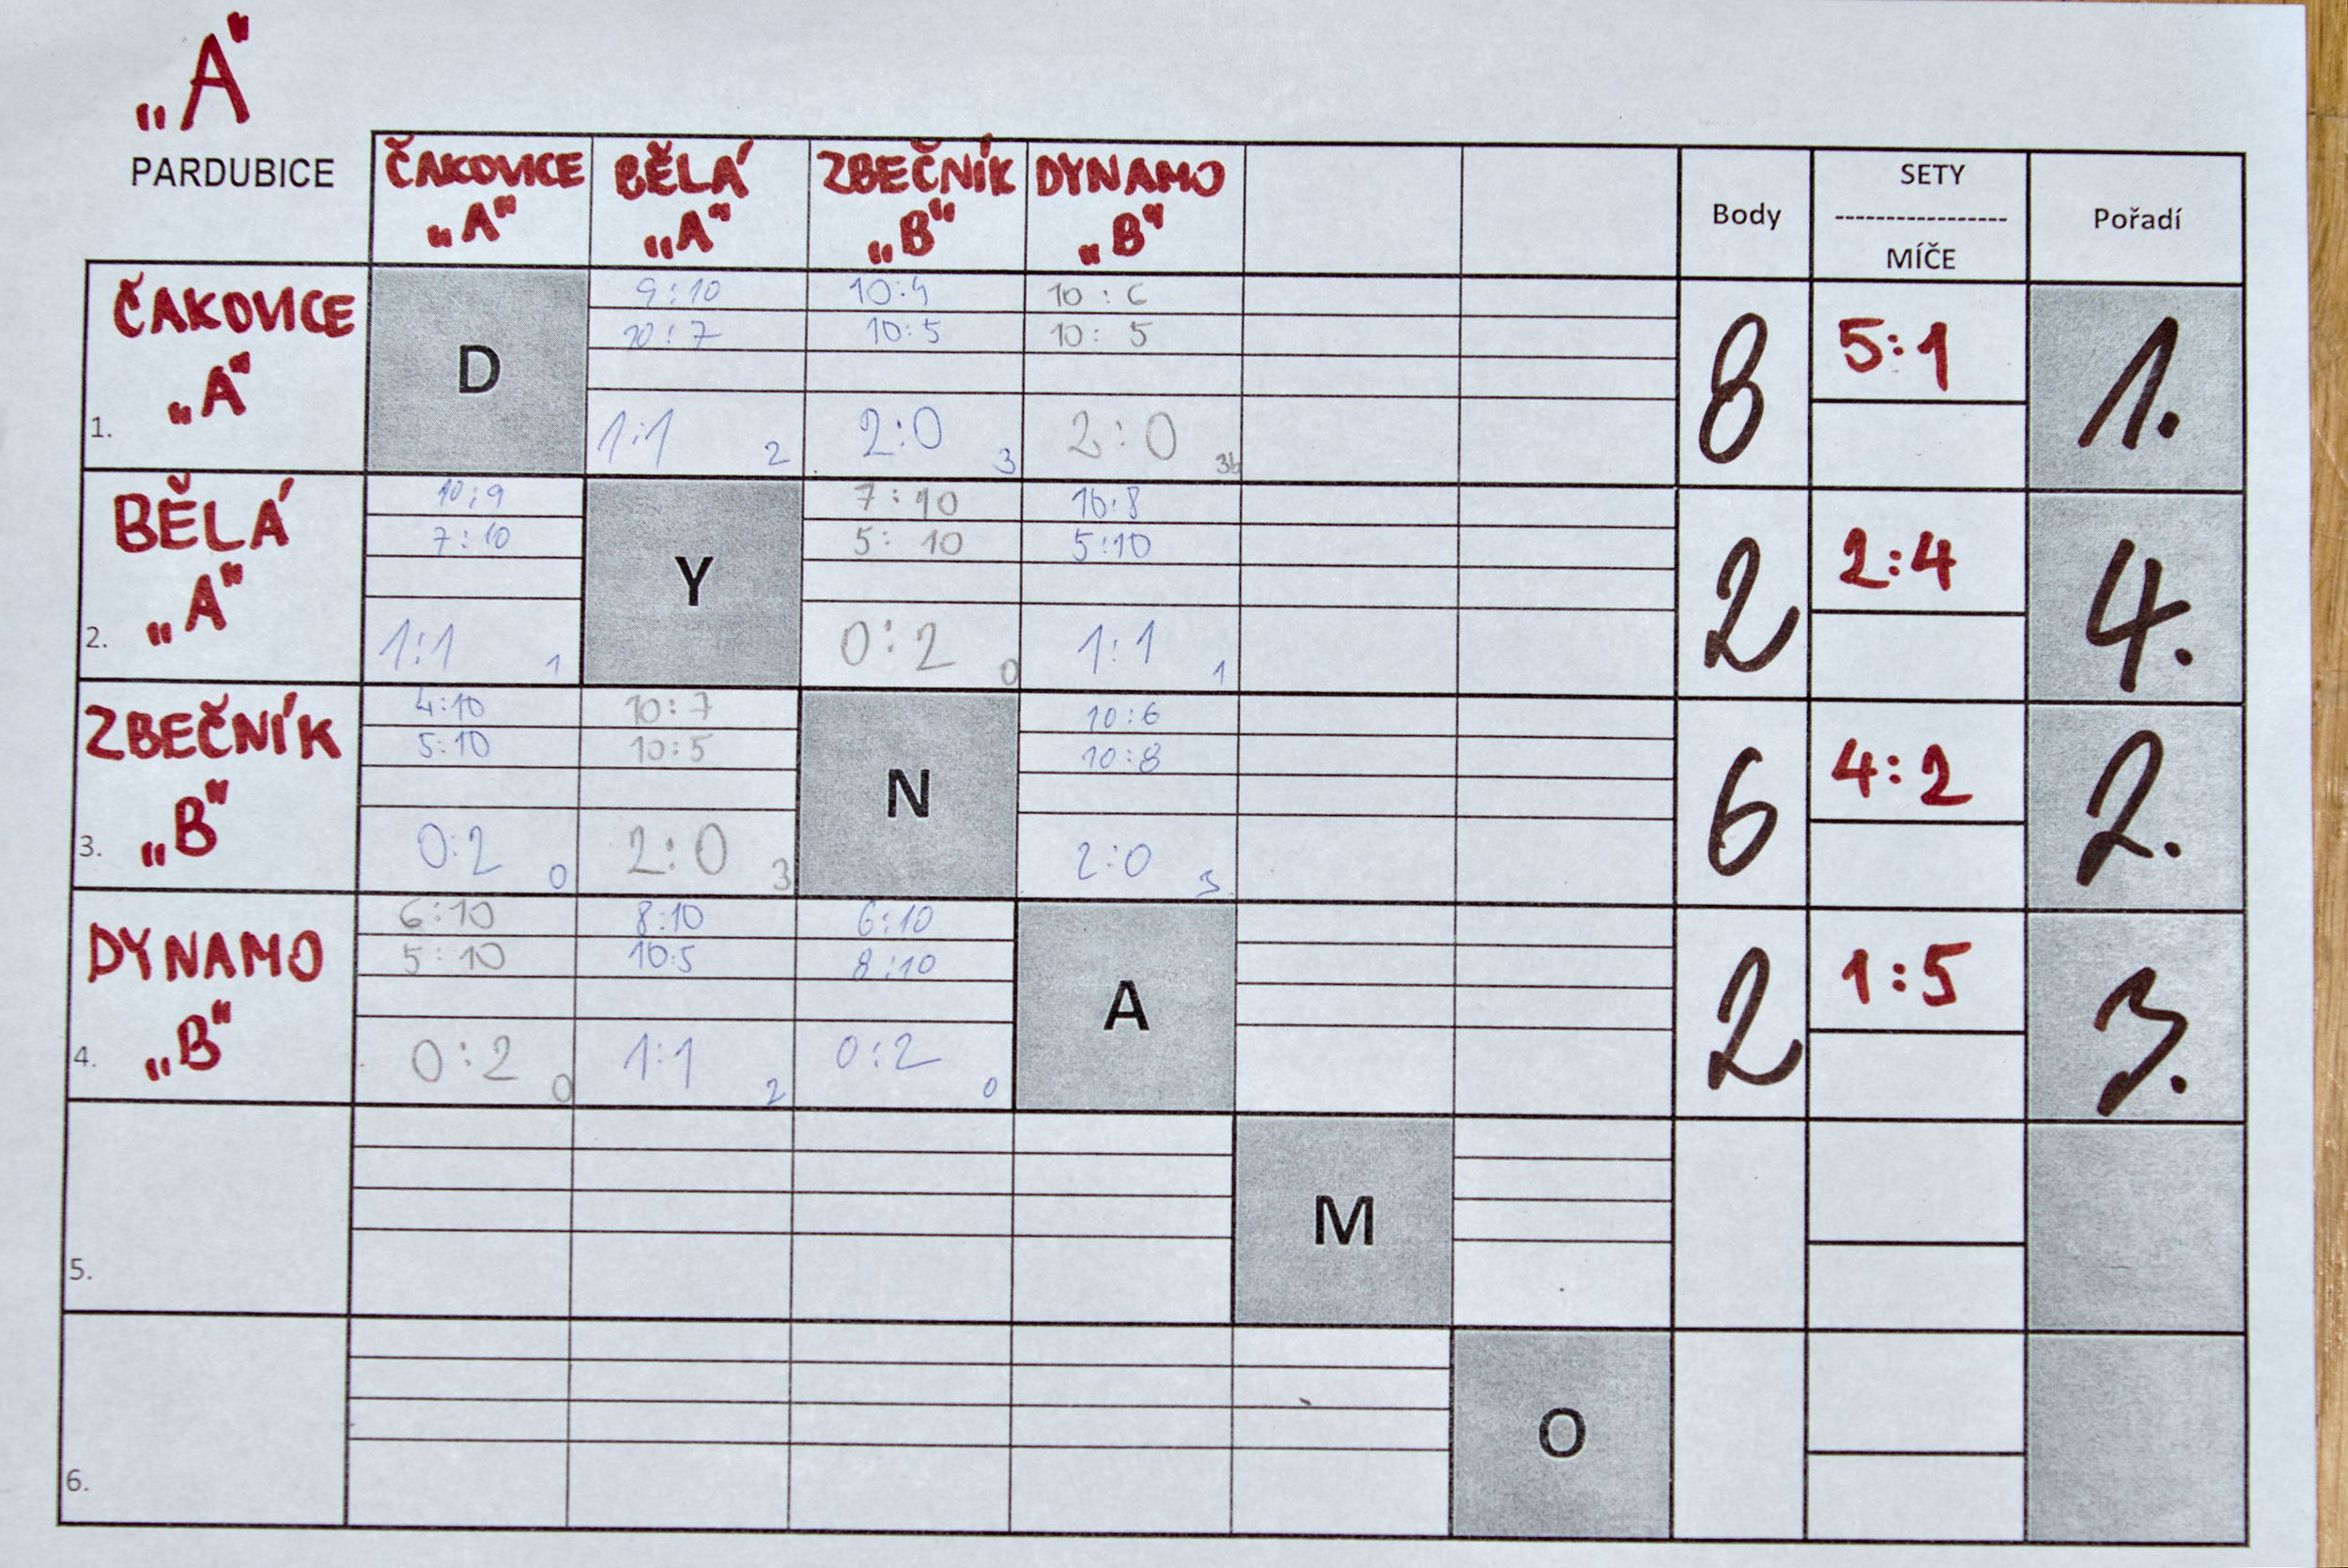 „A"
PARDUBICE
ČAKOVICE „A" BĚLÁ „A" ZBEČNÍK „B" DYNAMO „B" Body SETY ----------------- MÍČE Pořadí
ČAKOVICE „A"
1.
D
9:10 10:4 10:6
10:7 10:5 10:5
1:1 2 2:0 3 2:0 3b
8 5:1 1.
BĚLÁ „A"
2.
10:9 7:10 10:8
7:10 5:10 5:10
Y
1:1 1 0:2 0 1:1 1
2 2:4 4.
ZBEČNÍK „B"
3.
4:10 10:7 10:6
5:10 10:5 10:8
N
0:2 0 2:0 3 2:0 3
6 4:2 2.
DYNAMO „B"
4.
6:10 8:10 6:10
5:10 10:5 8:10
A
0:2 0 1:1 2 0:2 0
2 1:5 3.
5.
M
6.
O